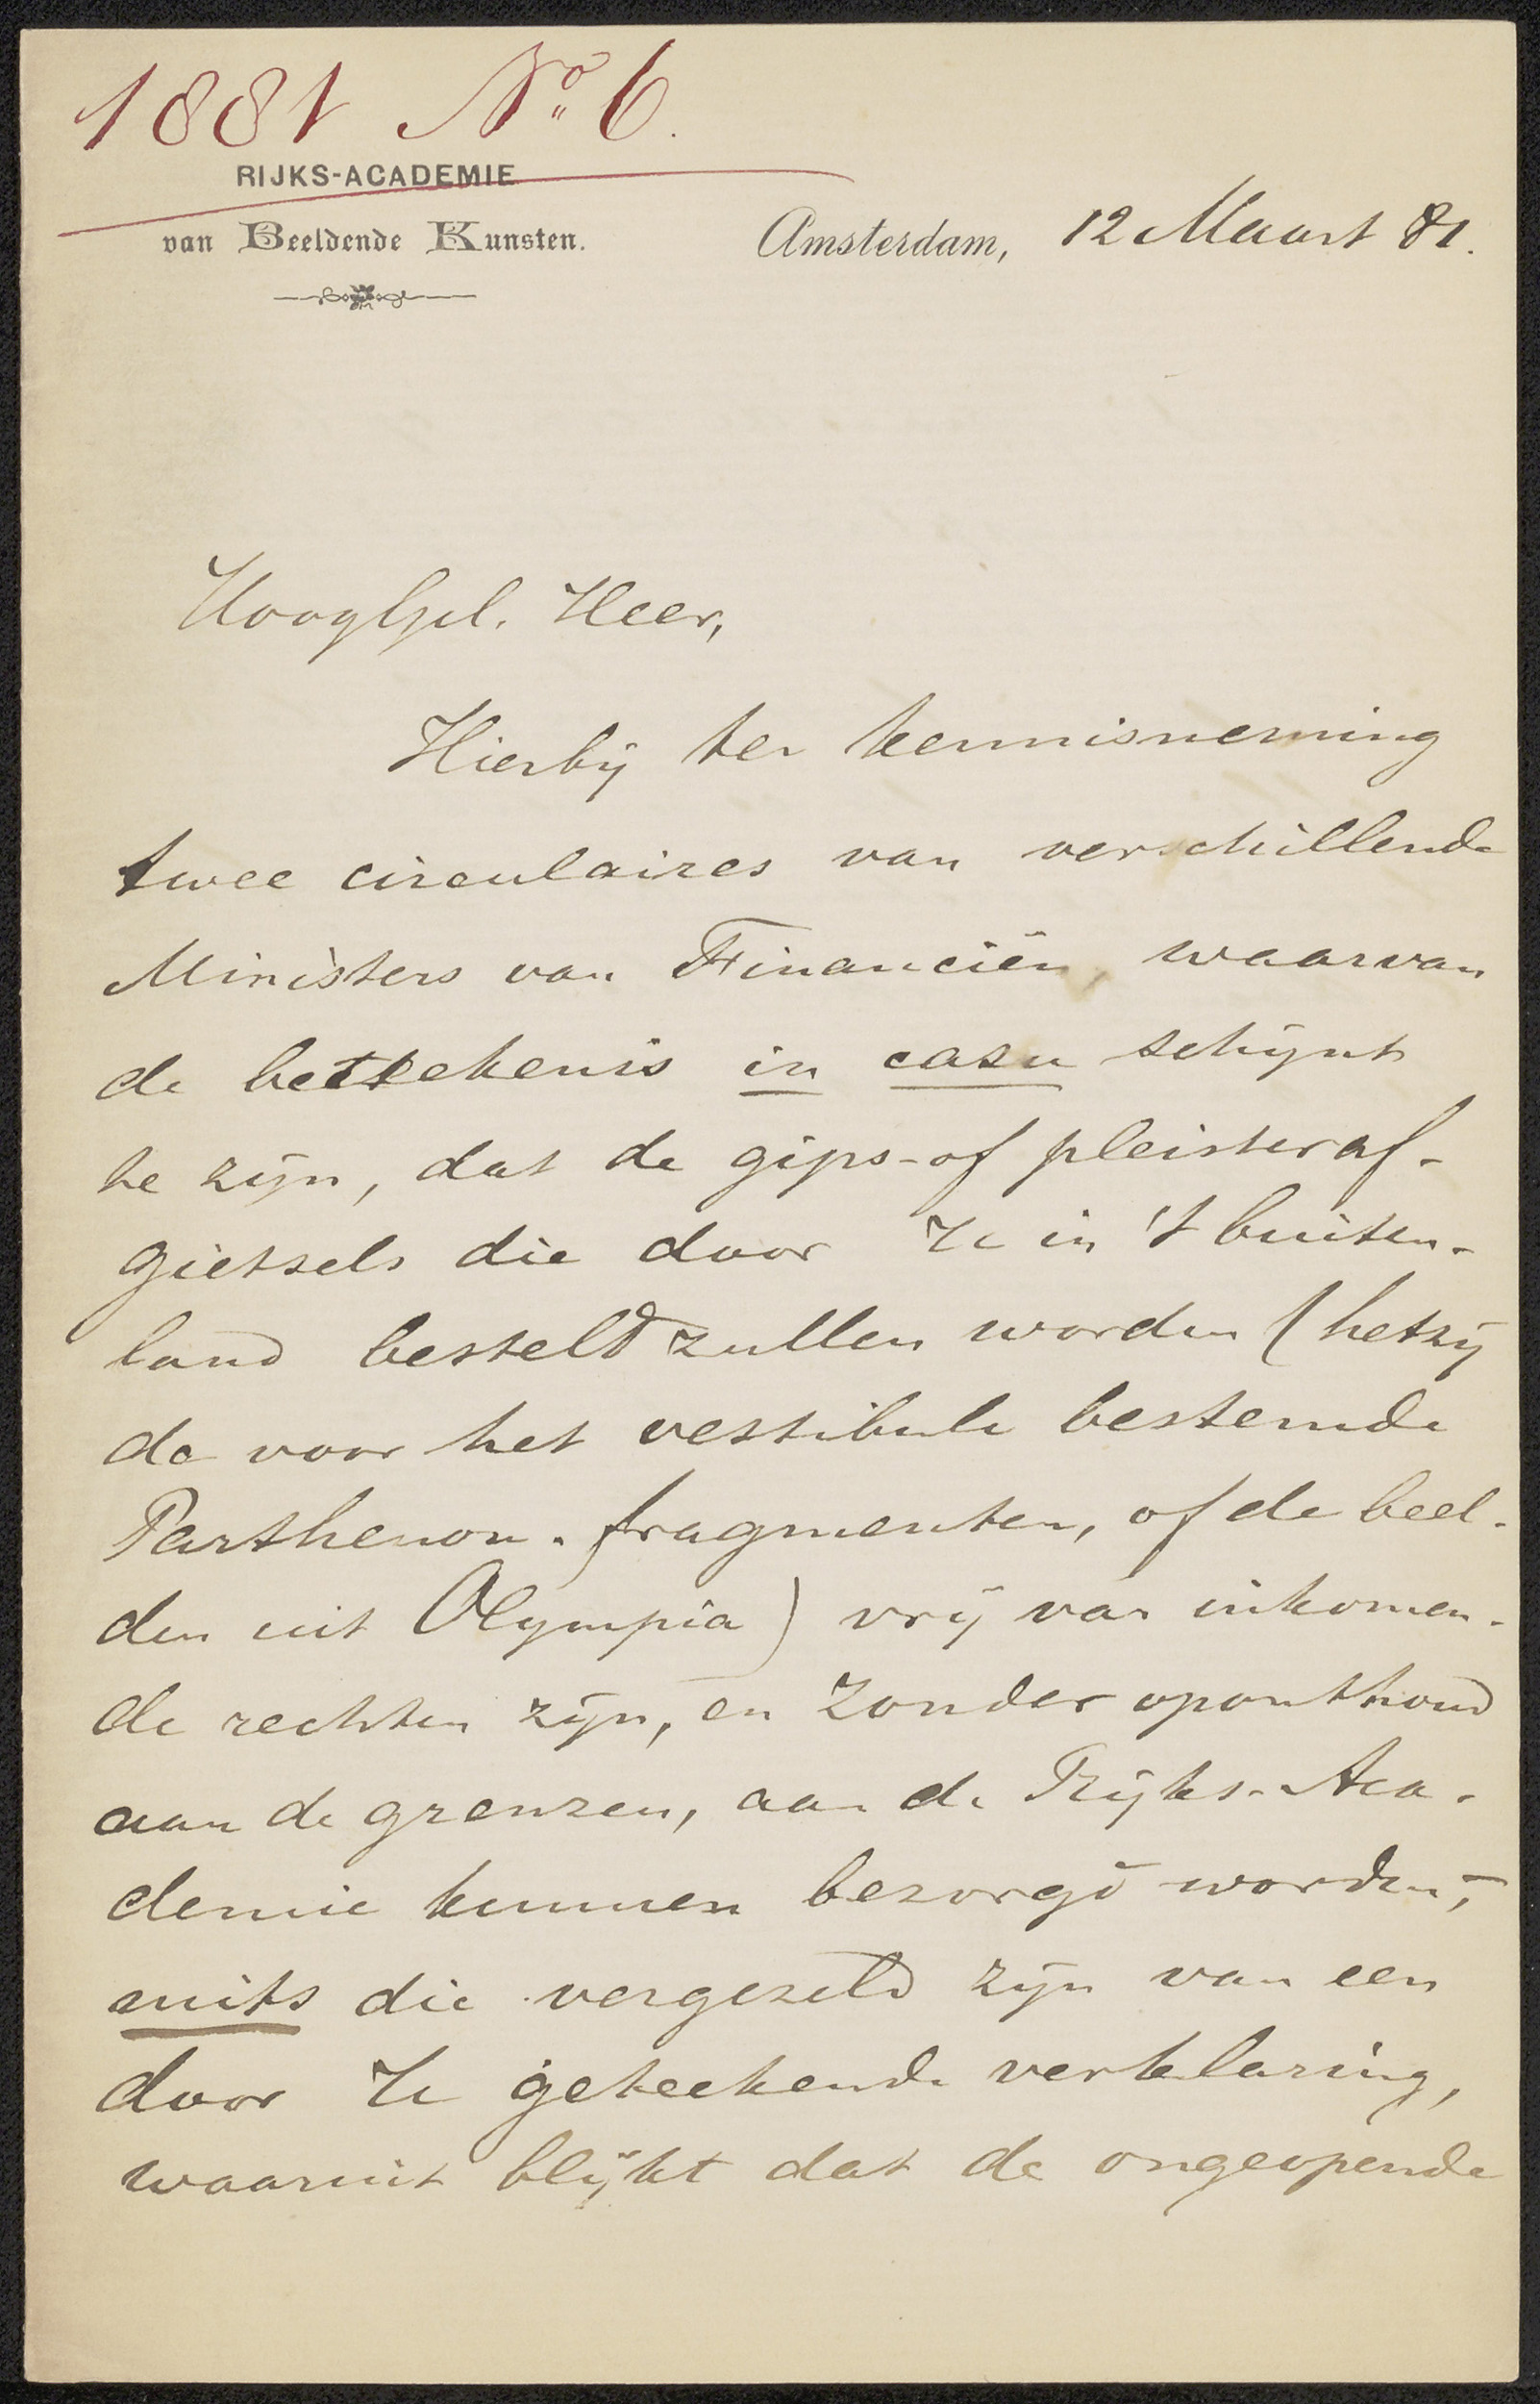 1881 No. 6.
RIJKS-ACADEMIE
van Beeldende Kunsten.
Amsterdam, 12 Maart 81.
HoogGel. Heer,
Hierbij ter kennisneming
twee circulaires van verschillende
Ministers van Financiën, waarvan
de betekenis in casu schijnt
te zijn, dat de gips- of pleisteraf-
gietsels die door U in 't buiten-
land besteld zullen worden (hetzij
de voor het vestibule bestemde
Parthenon-fragmenten, of de beel-
den uit Olympia) vrij van inkomen-
de rechten zijn, en zonder oponthoud
aan de grenzen, aan de Rijks-Aca-
demie kunnen bezorgd worden,-
mits die vergezeld zijn van een
door U geteekende verklaring,
waaruit blijkt dat de ongeopende